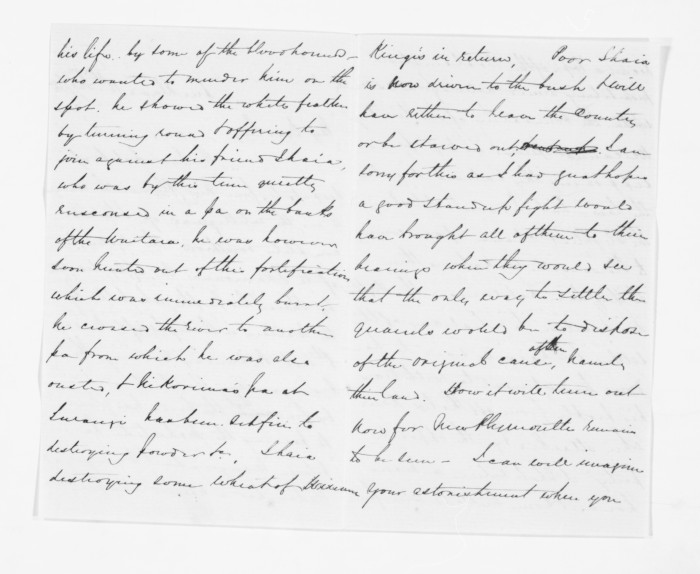 his life by some of the bloodhounds -
who wanted to murder him on the
spot. he showed the white feather
by turning round & offering to
join against his friend Ihaia,
who was by this time
ensconsed in a pa on the banks
of the Waitara, he was however
soon hunted out of this fortification
which was immediately burnt.
he crossed the river to another
pa from which he was also
ousted, & Ki Korima's pa at
has been set fire to
destroying powder &c, Ihaia
destroying some wheat of Wiremu
King's in return, Poor Ihaia
is now driven to the bush & will
have either to leave the Country
or be starved out, I am
sorry for this as I had great hopes
a good stand up fight would
have brought all of them to their
bearings when they would see
that the only way to settle their
quarrels would be to dispose
of the original cause, namely
their land. How it will turn out
now for New Plymouth remains
to be seen - I can well imagine
your astonishment when you